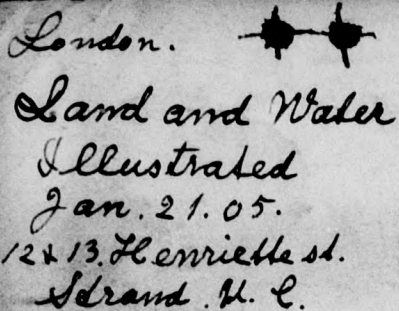 London.
Land and Water
Illustrated
Jan. 21. 05.
12 & 13. Henriette st.
Strand. W. C.